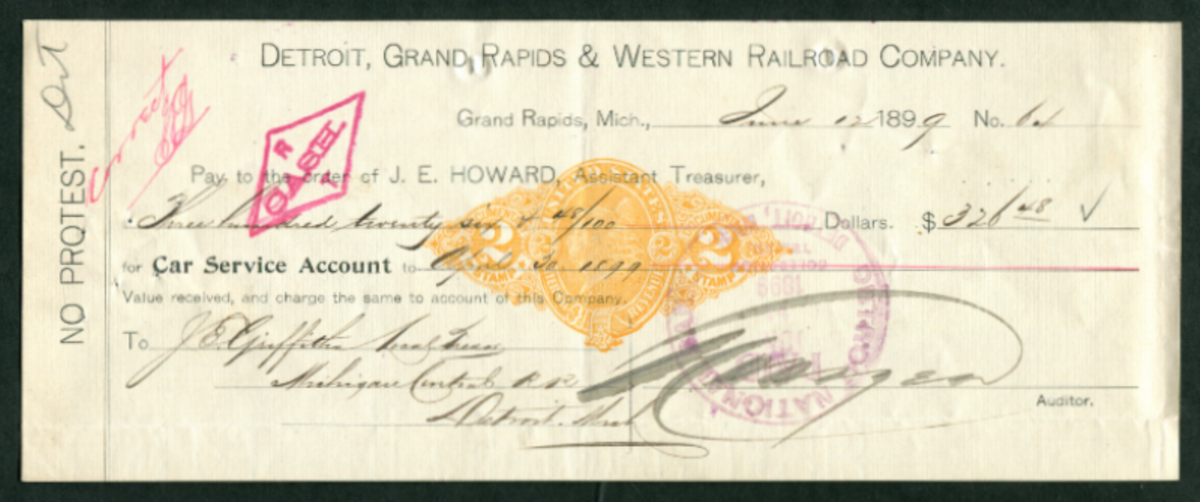 DETROIT, GRAND RAPIDS & WESTERN RAILROAD COMPANY.
Grand Rapids, Mich., June 12 1899 No. 64
Correct
NO PROTEST.
Pay to the order of J. E. HOWARD, Assistant Treasurer,
Three hundred twenty six & 48/100 Dollars. $ 326 48 ✓
for Car Service Account to April 30 1899
Value received, and charge the same to account of this Company.
To J E Griffith Local Treas
Michigan Central R R
Detroit. Mich
Auditor.
UNITED STATES
2 2 2
STAMP STAMP
REVENUE
NATIONAL
DETROIT